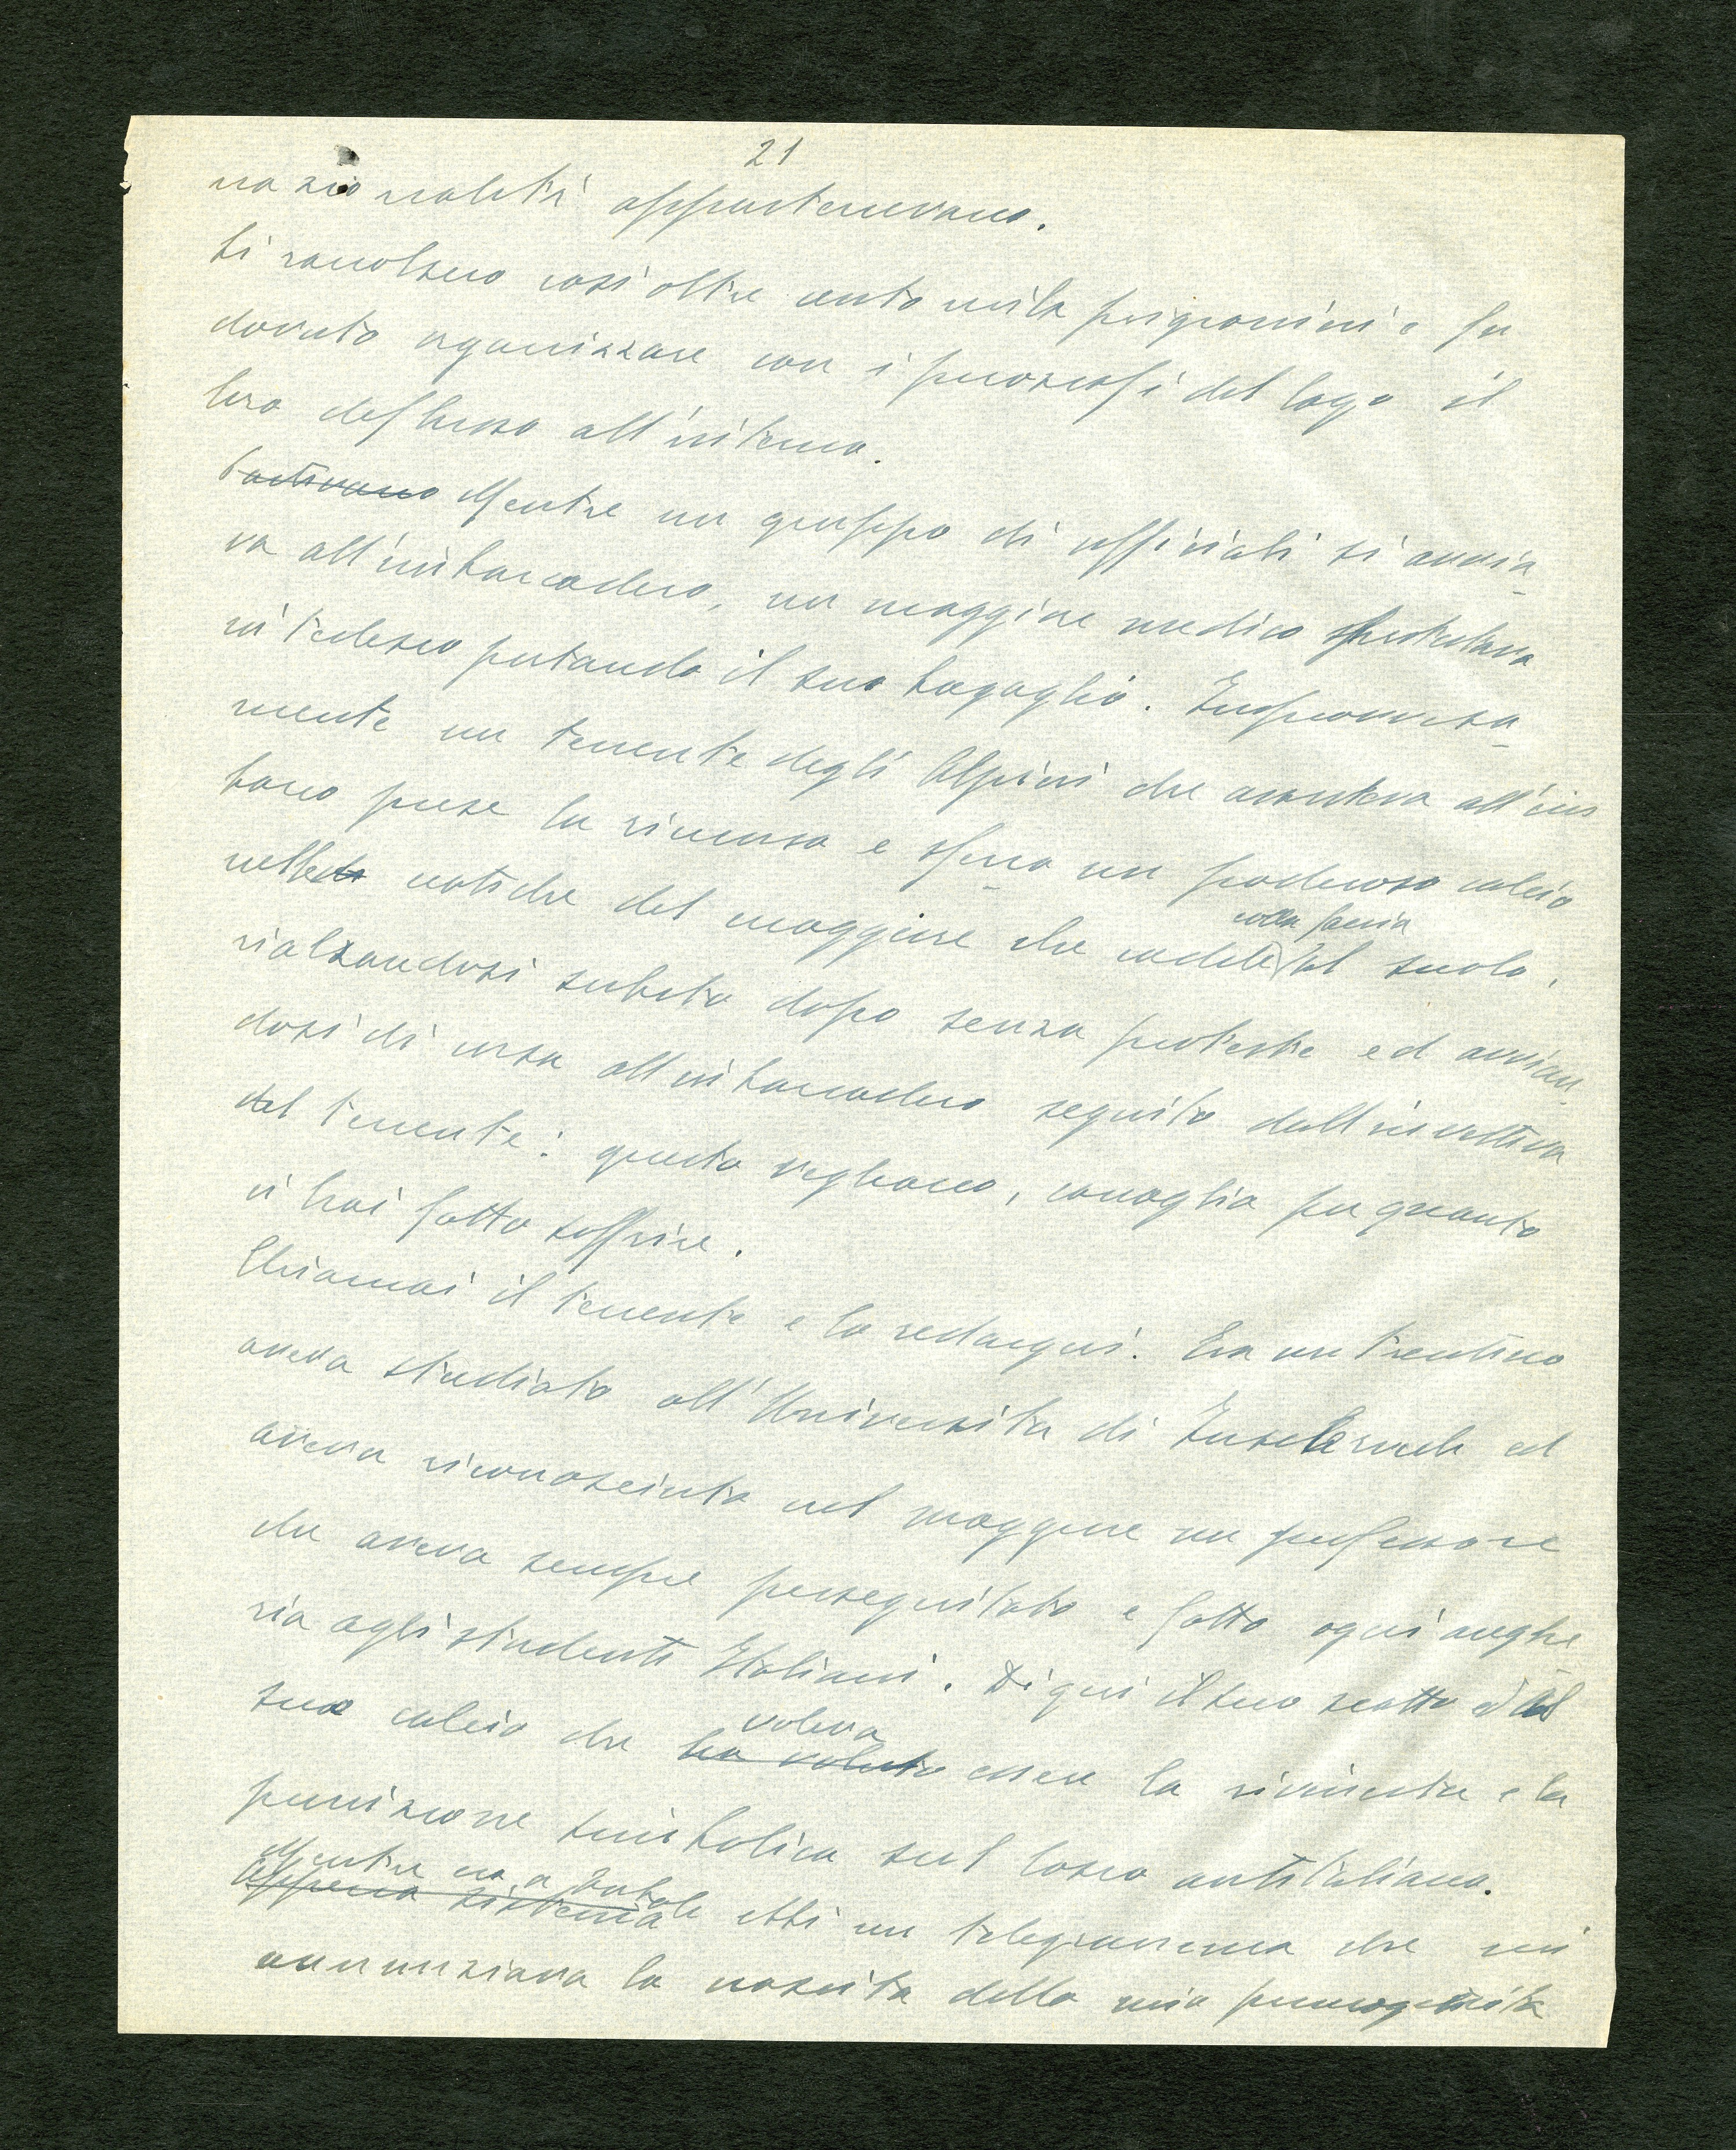 21
nazionalità appartenevano.
Si raccolsero così oltre centomila prigionieri e fu
dovuto organizzare con i piroscafi del lago il
loro deflusso all'interno.
Partivano Mentre un gruppo di ufficiali si avvia-
va all'imbarcadero, un maggiore medico
in tedesco portando il suo bagaglio. Improvvisa-
mente un tenente degli Alpini che assisteva all'im
barco prese la rincorsa e sferra un poderoso calcio
nelle natiche del maggiore che cadde colla faccia al suolo,
rialzandosi subito dopo senza proteste ed avvian-
dosi di corsa all'imbarcadero seguito dall'invettiva
del tenente: questo vogliamo, canaglia per quanto
ci hai fatto soffrire.
Chiamai il tenente e lo redarguii. Era un trentino
aveva studiato all'Università di Insbruck ed
aveva riconosciuto nel maggiore un professore
che aveva sempre perseguitato e fatto ogni anghe
ria agli studenti Italiani. Di qui il suo scatto ed il
suo calcio che ha voluto voleva essere la rivincita e la
punizione simbolica sul losco antitaliano.
Appena sistema
Mentre ero a ebbi un telegramma che mi
annunziava la nascita della mia primogenita